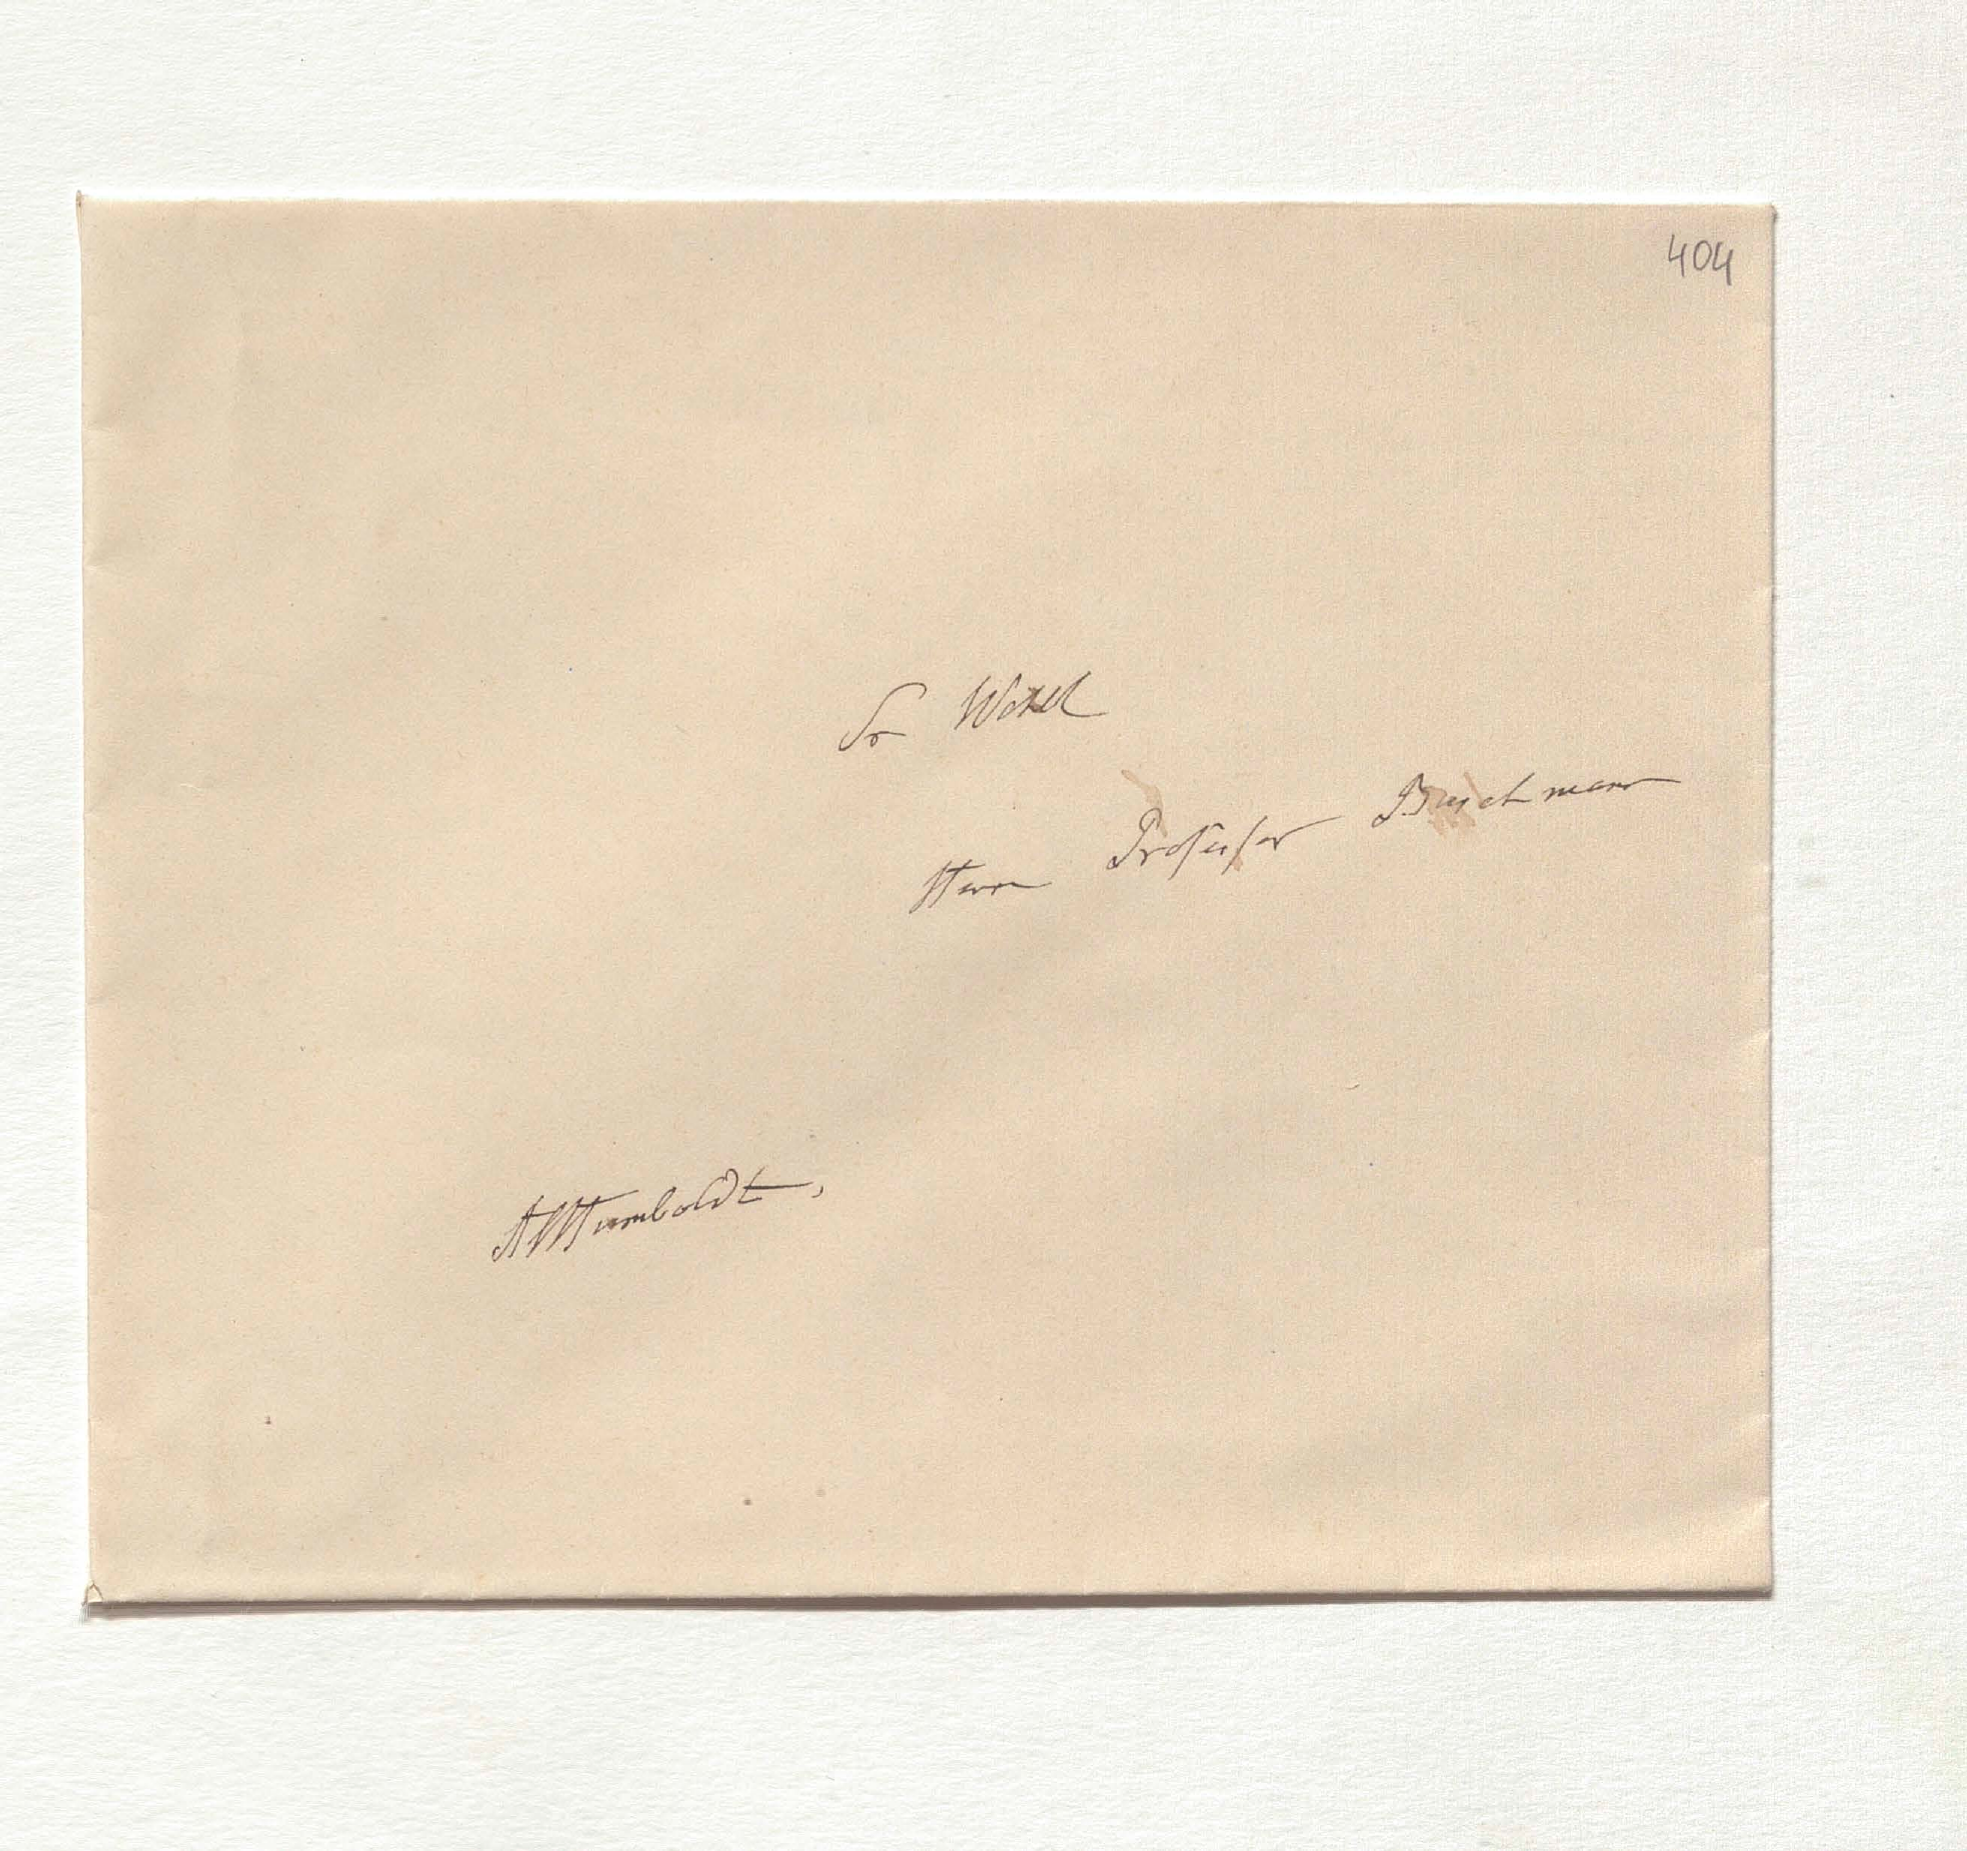 404
Sr Wohl
Herrn Professor Buschmann
AvHumboldt,